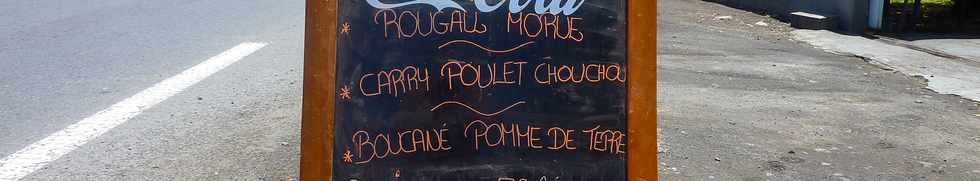 * ROUGAIL MORUE
* CARRY POULET CHOUCHOU
* BOUCANÉ POMME DE TERRE